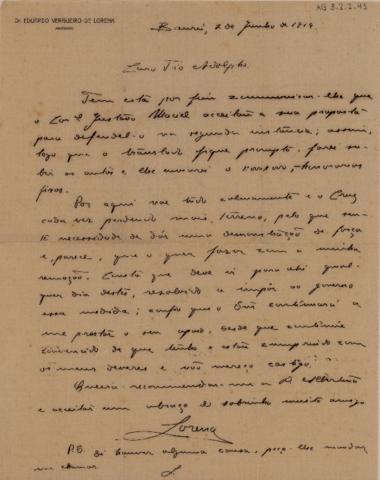 AG 3.2.2.45
DR. EDUARDO VERGUEIRO DE LORENA
ADVOGADO
Baurú, 2 de Junho de 1919.
Caro Tio Adolpho.
Tem esta por fim communicar-lhe que
o Cor.l Gustavo Maciel acceitou a sua proposta
para defendel-o na segunda instancia; assim,
logo que o translado fique prompto, farei
os autos e lhe enviarei o
Por aqui vae tudo calmamente e o Cruz
cada vez perdendo mais terreno, pelo que
necessidade de dar uma demonstração de força
e, parece, que o quer fazer com a minha
remoção. Consta que deve ir para ahi qual-
quer dia destes, resolvido a impôr ao governo
essa medida; confio que o continuará a
me prestar o seu apoio, desde que continúe
convencido de que tenho e estou cumprido com
os meus deveres e não mereço castigo.
Queira recommendar-me a
e acceitar um abraço do sobrinho muito amigo
Lorena
P.S. Si houver alguma cousa, peço-lhe mandar
me chamar.
L.